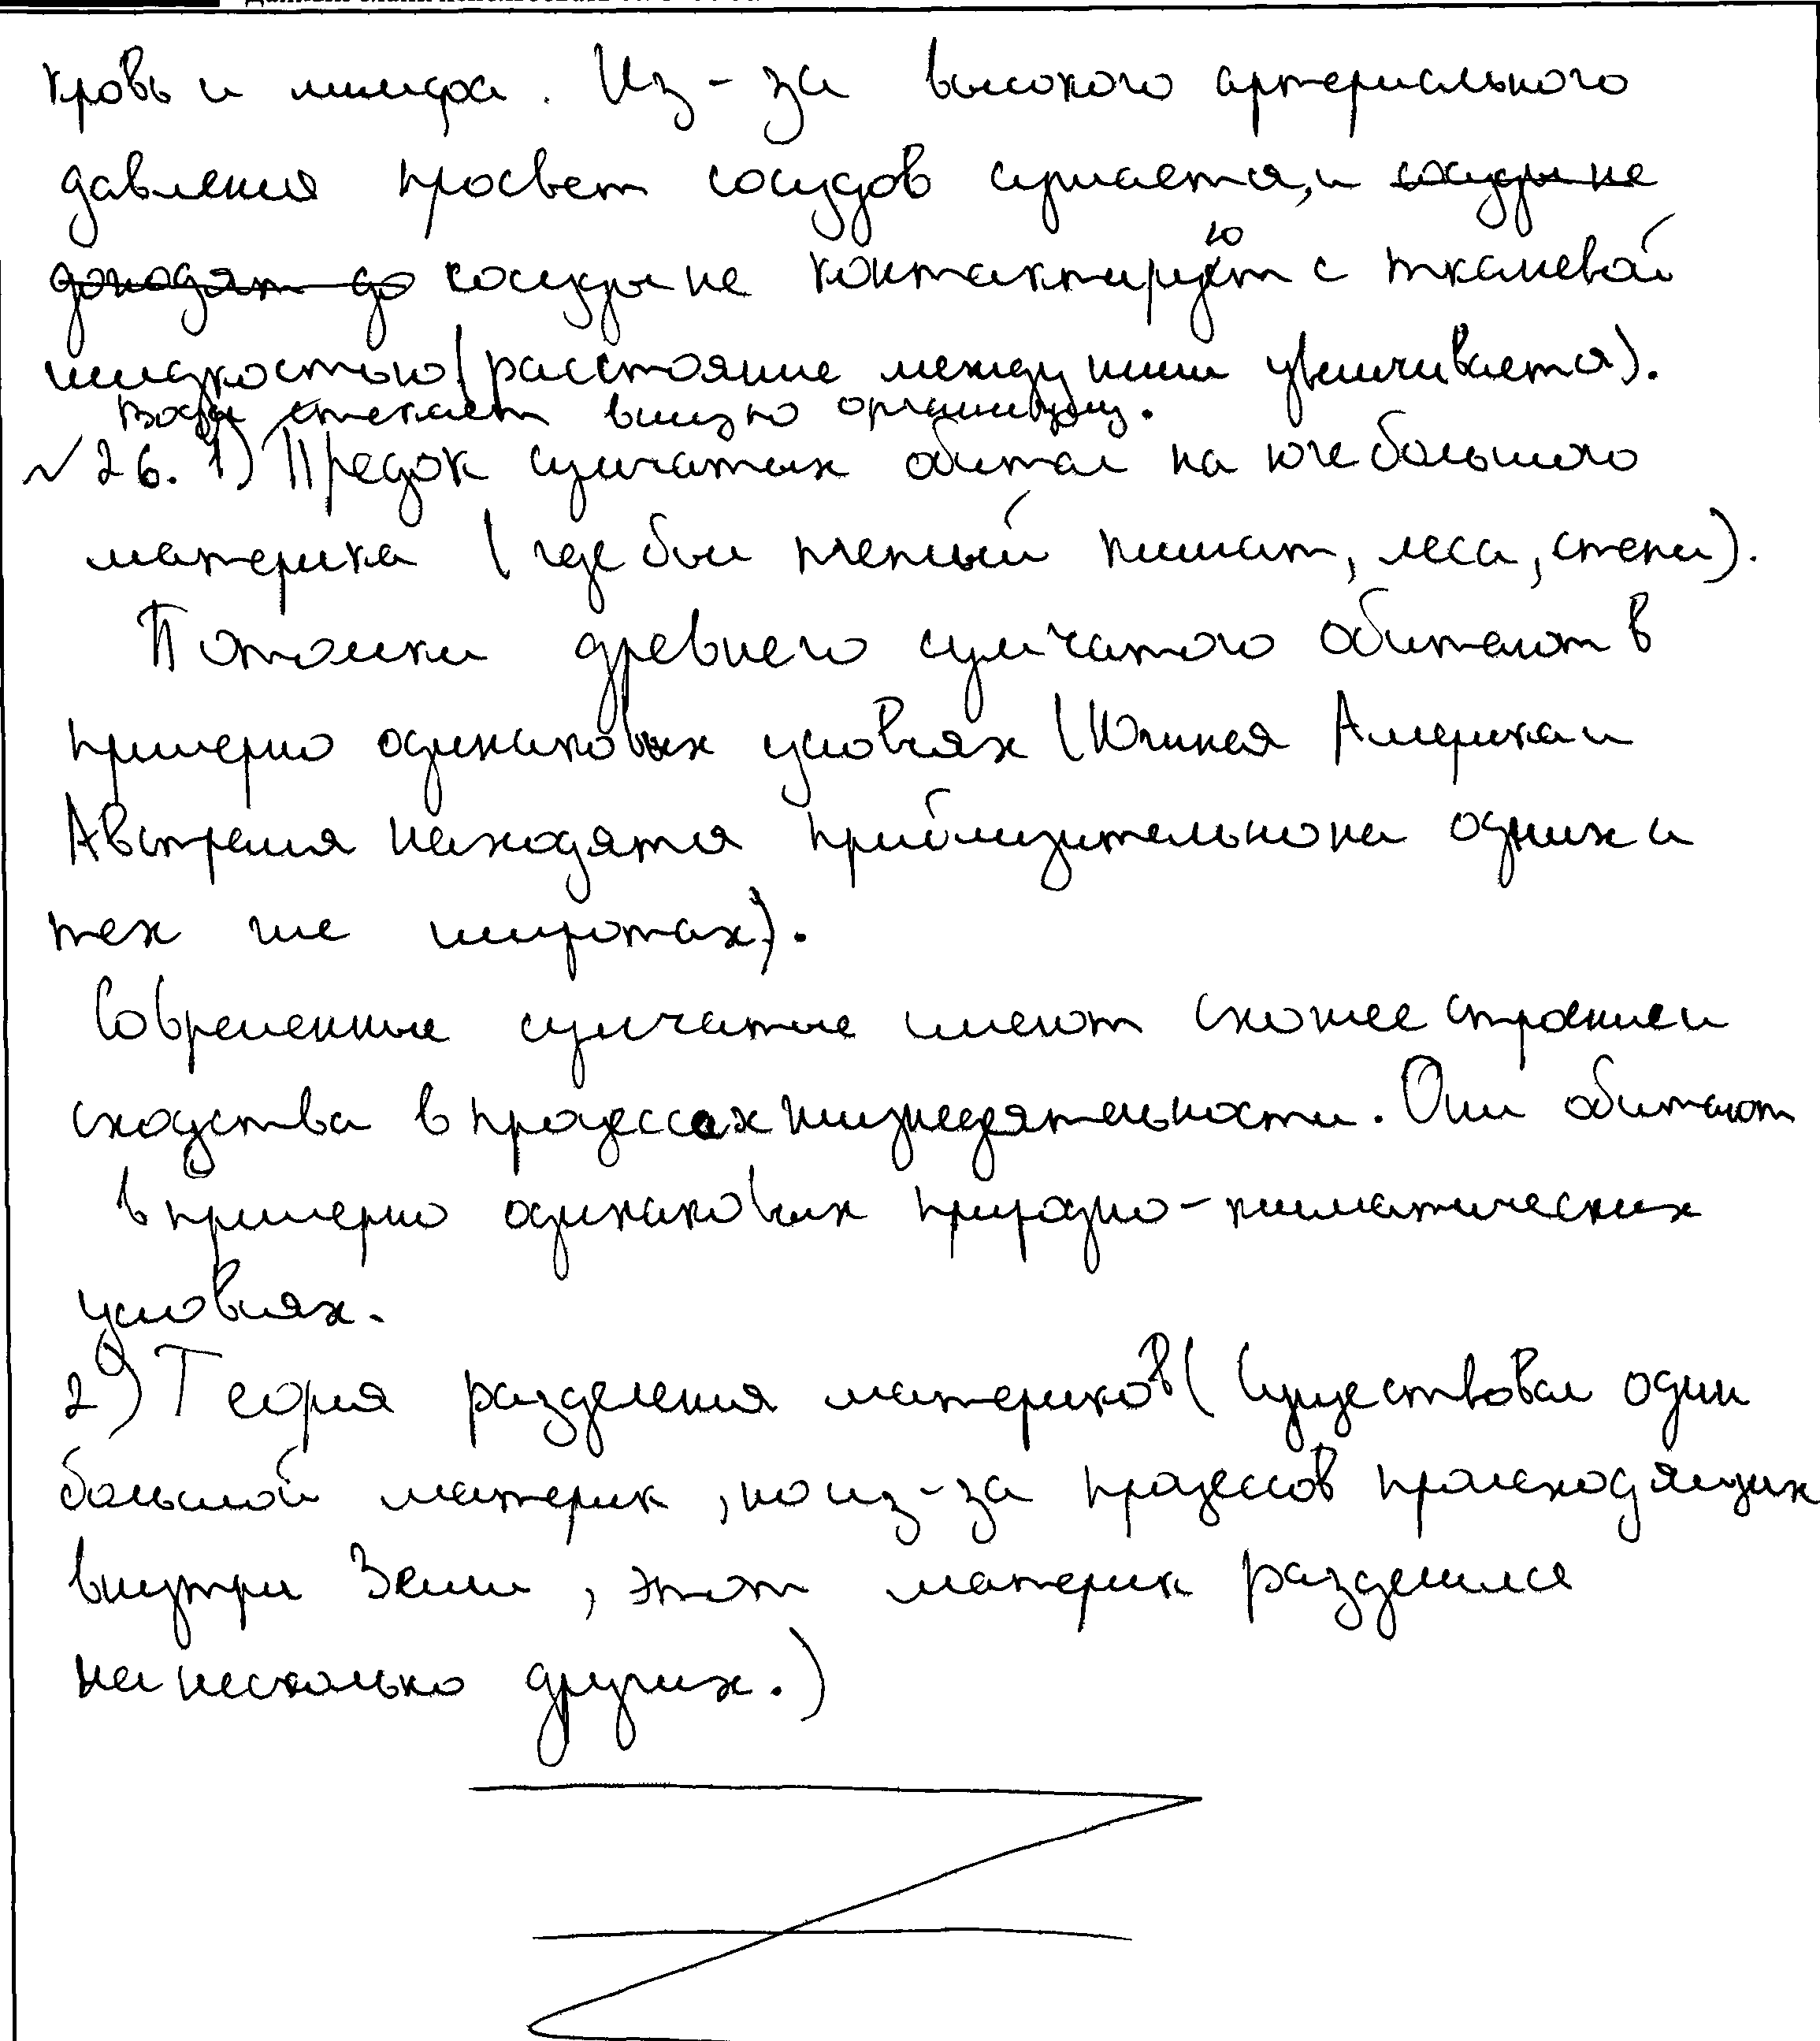 кровь и лимфа. Из-за высокого артериального
давления просвет сосудов сужается, и сосуды не
доходят до сосуды не контактируют с тканевой
жидкостью (расстояние между ними увеличивается).
Вода стекает вниз по организму.
№26. 1) Предок сумчатых обитал на юге большого
материка (где был теплый климат, леса, степи).
Потомки древнего сумчатого обитают в
примерно одинаковых условиях (Южная Америка и
Австралия находятся приблизительно на одних и
тех же широтах).
Современные сумчатые имеют схожее строение и
сходства в процессах жизнедеятельности. Они обитают
в примерно одинаковых природно-климатических
условиях.
2) Теория разделения материков (Существовал один
большой материк, но из-за процессов происходящих
внутри Земли, этот материк разделился
на несколько других.)